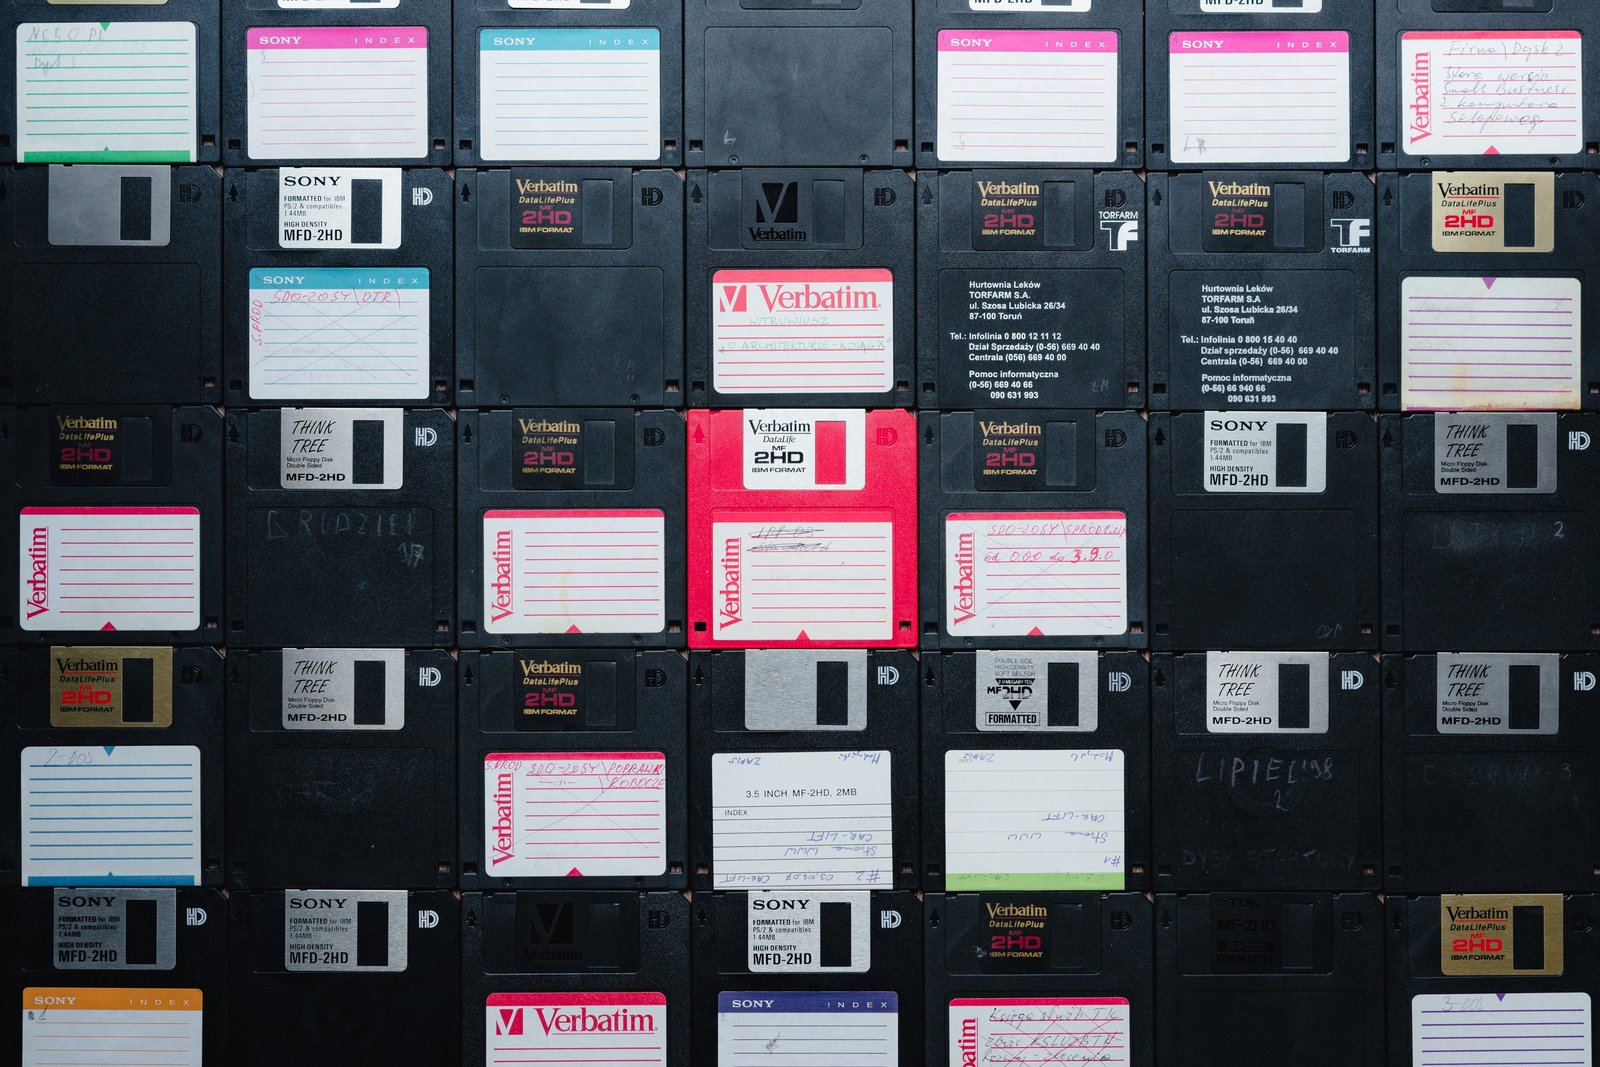 NC 5.0 PL
Dysk 3
SONY INDEX
SONY INDEX
SONY INDEX
SONY INDEX
Verbatim
Firma \ Dysk 2
Stara wersja
Small Business
z komputera
sklepowego
HD
SONY
FORMATTED for IBM
PS/2 & compatibles
1.44MB
HIGH DENSITY
MFD-2HD
HD
SONY INDEX
S.PROD
SDO-2054\DTR\
Verbatim
DataLifePlus
MF
2HD
IBM FORMAT
HD
Verbatim
HD
Verbatim.
WITRUWIUSZ
"O ARCHITEKTURZE - KSIĄG X"
Verbatim
DataLifePlus
MF
2HD
IBM FORMAT
HD
TORFARM
TF
Hurtownia Leków
TORFARM S.A.
ul. Szosa Lubicka 26/34
87-100 Toruń
Tel.: Infolinia 0 800 12 11 12
Dział Sprzedaży (0-56) 669 40 40
Centrala (056) 669 40 00
Pomoc informatyczna
(0-56) 669 40 66
090 631 993
Verbatim
DataLifePlus
MF
2HD
IBM FORMAT
HD
TF
TORFARM
Hurtownia Leków
TORFARM S.A
ul. Szosa Lubicka 26/34
87-100 Toruń
Tel.: Infolinia 0 800 15 40 40
Dział sprzedaży (0-56) 669 40 40
Centrala (0-56) 669 40 00
Pomoc informatyczna
(0-56) 66 940 66
090 631 993
Verbatim
DataLifePlus
MF
2HD
IBM FORMAT
HD
Verbatim
DataLifePlus
MF
2HD
IBM FORMAT
HD
Verbatim
THINK
TREE
Micro Floppy Disk
Double Sided
MFD-2HD
HD
GRUDZIEŃ
Verbatim
DataLifePlus
MF
2HD
IBM FORMAT
HD
Verbatim
Verbatim
DataLife
MF
2HD
IBM FORMAT
HD
Verbatim
Standard
Verbatim
DataLifePlus
MF
2HD
IBM FORMAT
HD
Verbatim
SDO-2054\SPROD1.zip
od 0.0.0 do 3.9.0
SONY
FORMATTED for IBM
PS/2 & compatibles
1.44MB
HIGH DENSITY
MFD-2HD
HD
THINK
TREE
Micro Floppy Disk
Double Sided
MFD-2HD
HD
2
Verbatim
DataLifePlus
MF
2HD
IBM FORMAT
HD
THINK
TREE
Micro Floppy Disk
Double Sided
MFD-2HD
HD
Verbatim
DataLifePlus
MF
2HD
IBM FORMAT
HD
Verbatim
S.PROD
SDO-2054\POPRAWKI
ROBOCZE
HD
ZAPIS
3.5 INCH MF-2HD, 2MB
INDEX
CAR-LIFT
Strona WWW
#2 03.04.07 CAR-LIFT
DOUBLE SIDE
HIGH DENSITY
SOFT SECTOR
2.0 MEGABYTES
MF2HD
FORMATTED
HD
INDEX
ZAPIS
CAR-LIFT
Strona WWW
#1
THINK
TREE
Micro Floppy Disk
Double Sided
MFD-2HD
HD
LIPIEC '98
2
THINK
TREE
Micro Floppy Disk
Double Sided
MFD-2HD
HD
3
SONY
FORMATTED for IBM
PS/2 & compatibles
1.44MB
HIGH DENSITY
MFD-2HD
HD
SONY INDEX
1
SONY
FORMATTED for IBM
PS/2 & compatibles
1.44MB
HIGH DENSITY
MFD-2HD
HD
Verbatim
HD
Verbatim.
SONY
FORMATTED for IBM
PS/2 & compatibles
1.44MB
HIGH DENSITY
MFD-2HD
HD
SONY INDEX
Verbatim
DataLifePlus
MF
2HD
IBM FORMAT
HD
Verbatim
Księga służb TK
TDK
MF-2HD
MS-DOS
FORMATTED
HD
Verbatim
DataLifePlus
MF
2HD
IBM FORMAT
HD
3-DOS